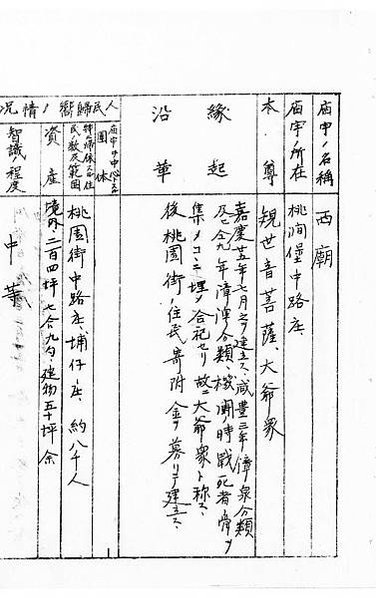 廟宇ノ名稱
西廟
廟宇ノ所在
桃澗堡中路庄
本尊
観世音菩薩、大爺衆
緣起
沿革
嘉慶廿五年七月之ヲ建立ス、咸豐三年漳泉分類
及ビ仝九年漳 分類、械鬪時戰死者 ヲ
集メコヽニ埋メ合祀セリ故ニ大爺衆ト称ス
後桃園街ノ住民寄附金ヲ募リテ建立ス
人民歸嚮ノ情況
廟宇ヲ中心トスル
團体
特ニ歸依スル住
民ノ數及範圍
桃園街中路庄、埔仔庄、約八千人
資産
境外二百四坪七合九勺、建物五十坪余
智識ノ程度
中等